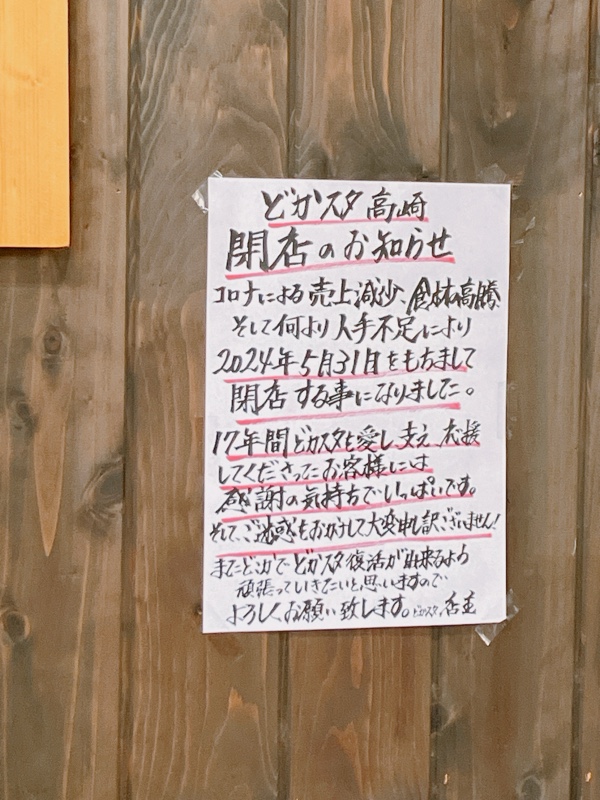 どカスタ高崎
閉店のお知らせ
コロナによる売上減少、食材高騰
そして何より人手不足により
2024年5月31日をもちまして
閉店する事になりました。
17年間どカスタを愛し支え応援
してくださったお客様には
感謝の気持ちでいっぱいです。
そしてご迷惑をおかけして大変申し訳ございません!
またどこかでどカスタ復活が出来るよう
頑張っていきたいと思いますので
よろしくお願い致します。どカスタ 店主